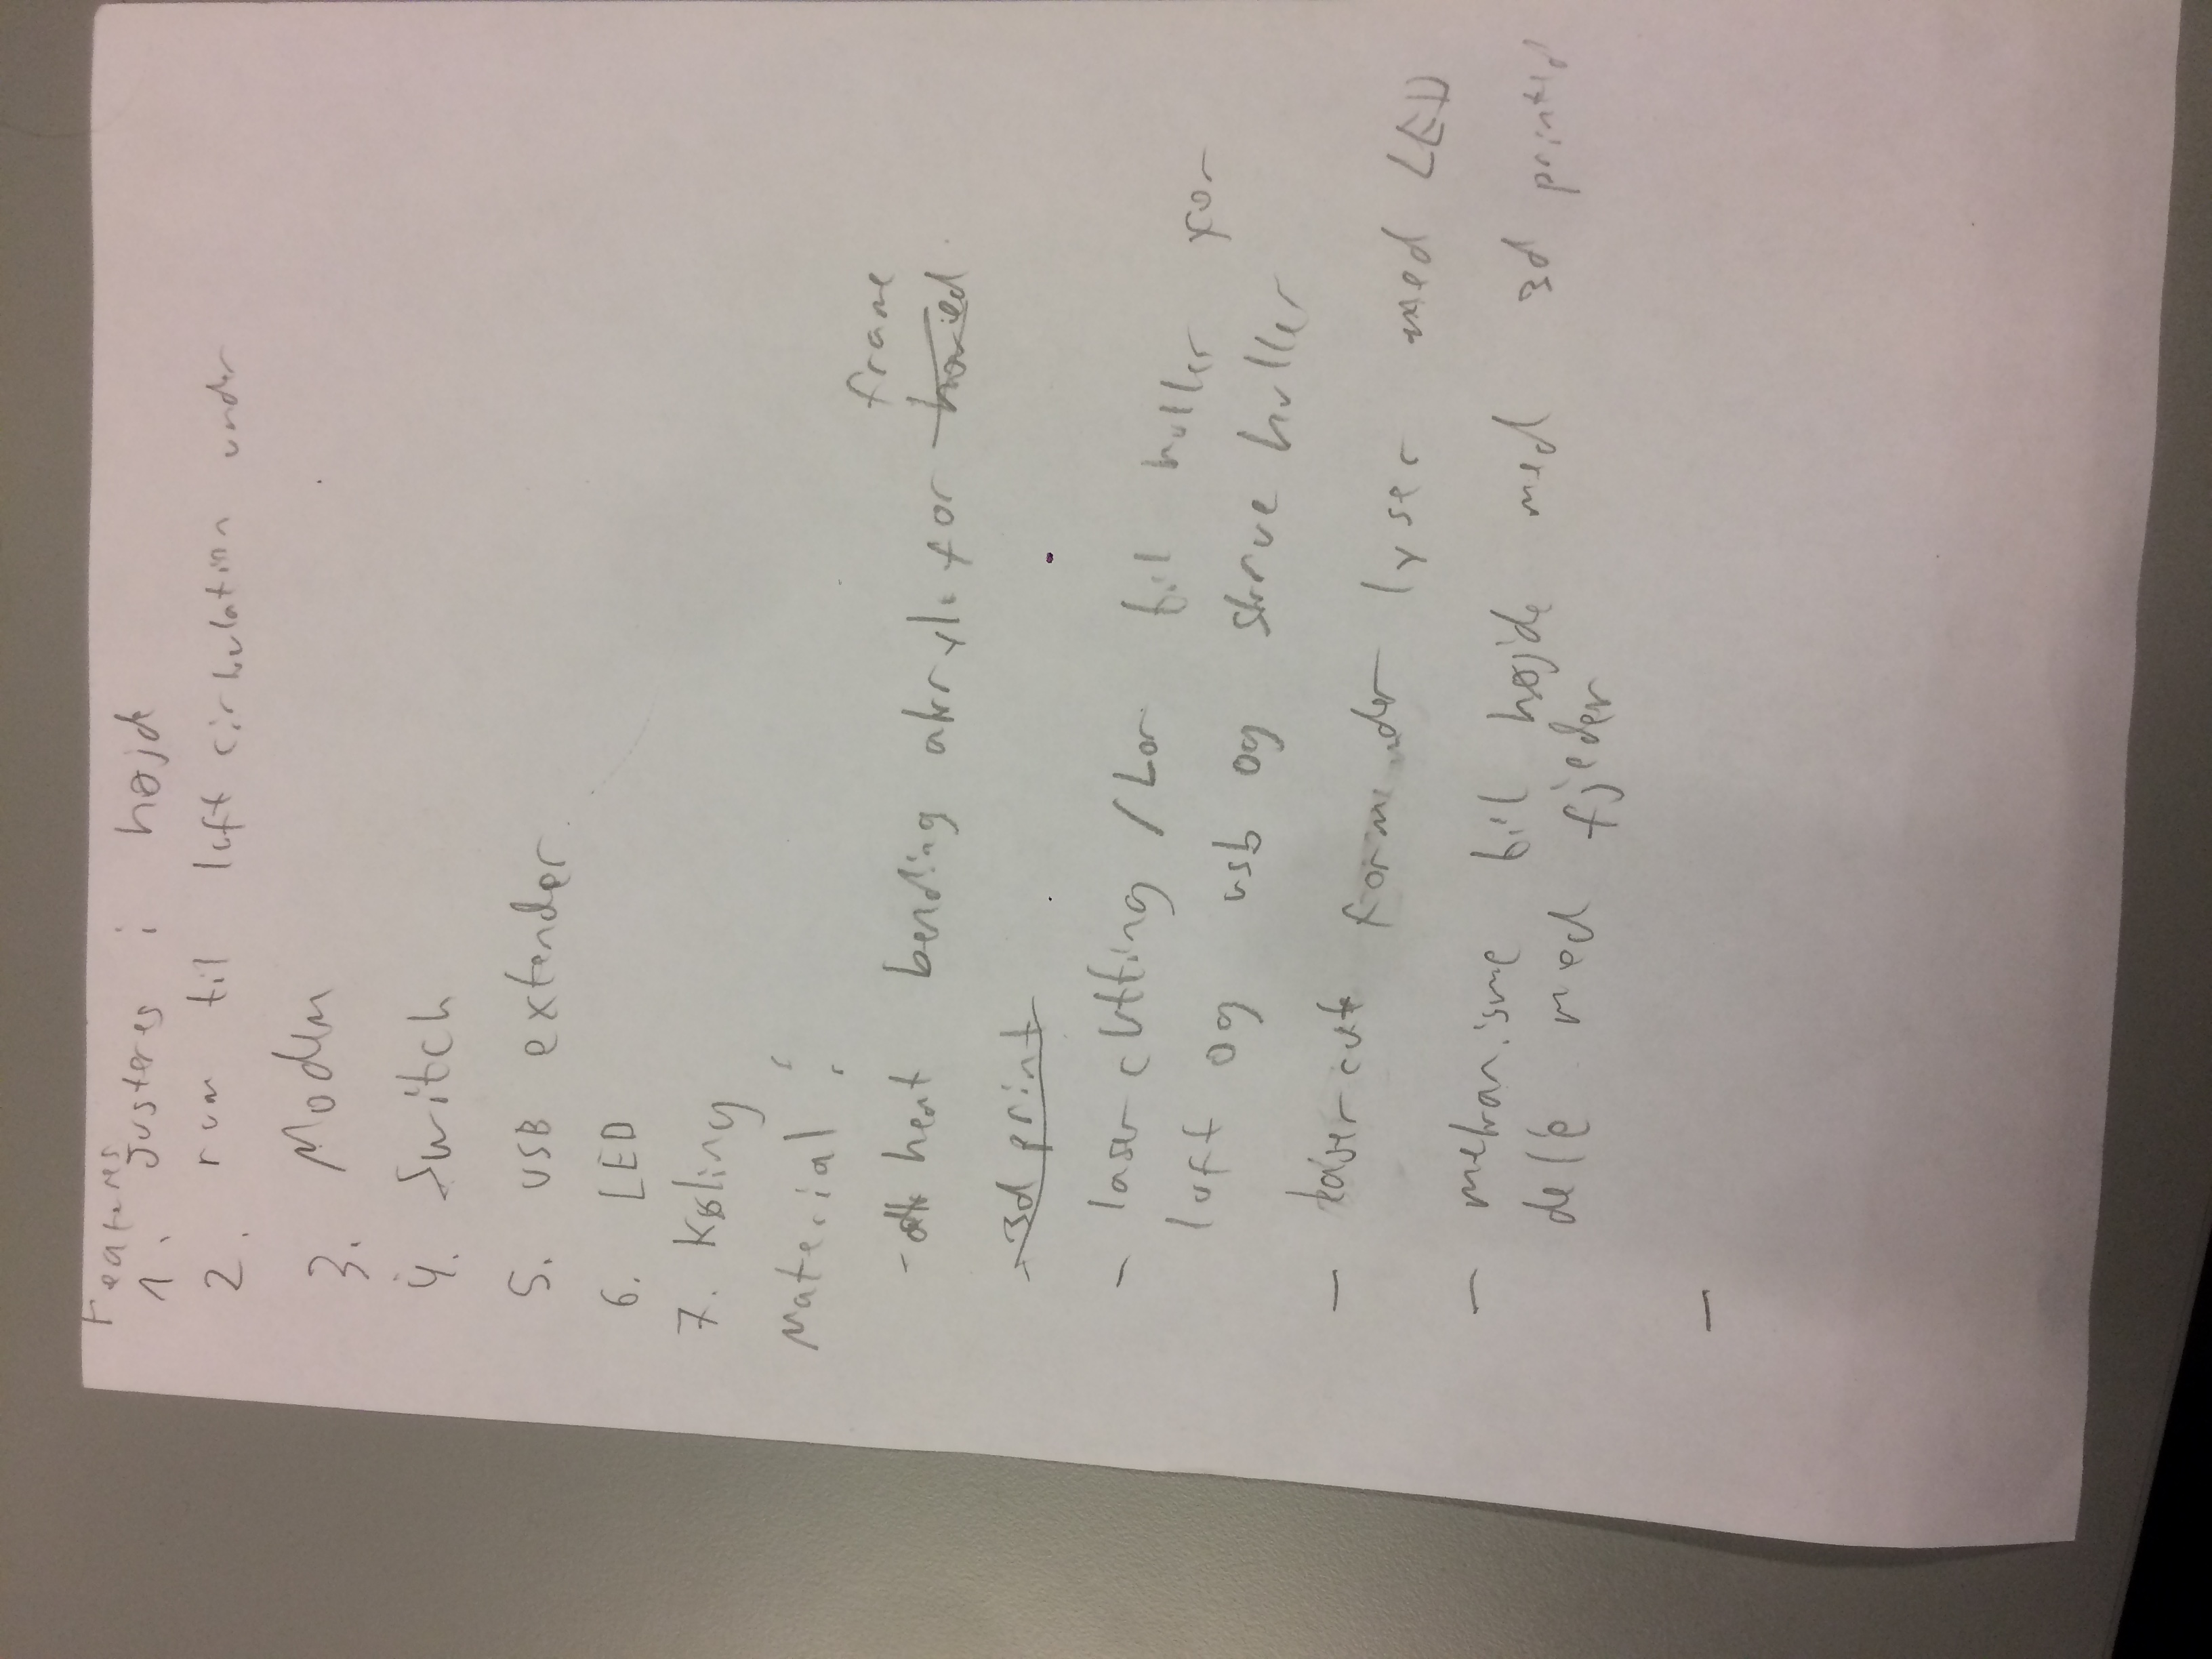 Features
1. Justeres i højde
2. rum til luft cirkulation under
3. Modem
4. Switch
5. USB extender
6. LED
7. Køling
Material :
frame
- heat bending akryl for
- 3d print
- laser cutting / bor til huller for
luft og usb og skrue huller
- lasercut form der lyser med LED
- mekanisme til højde med 3d printed
dele med fjeder
-